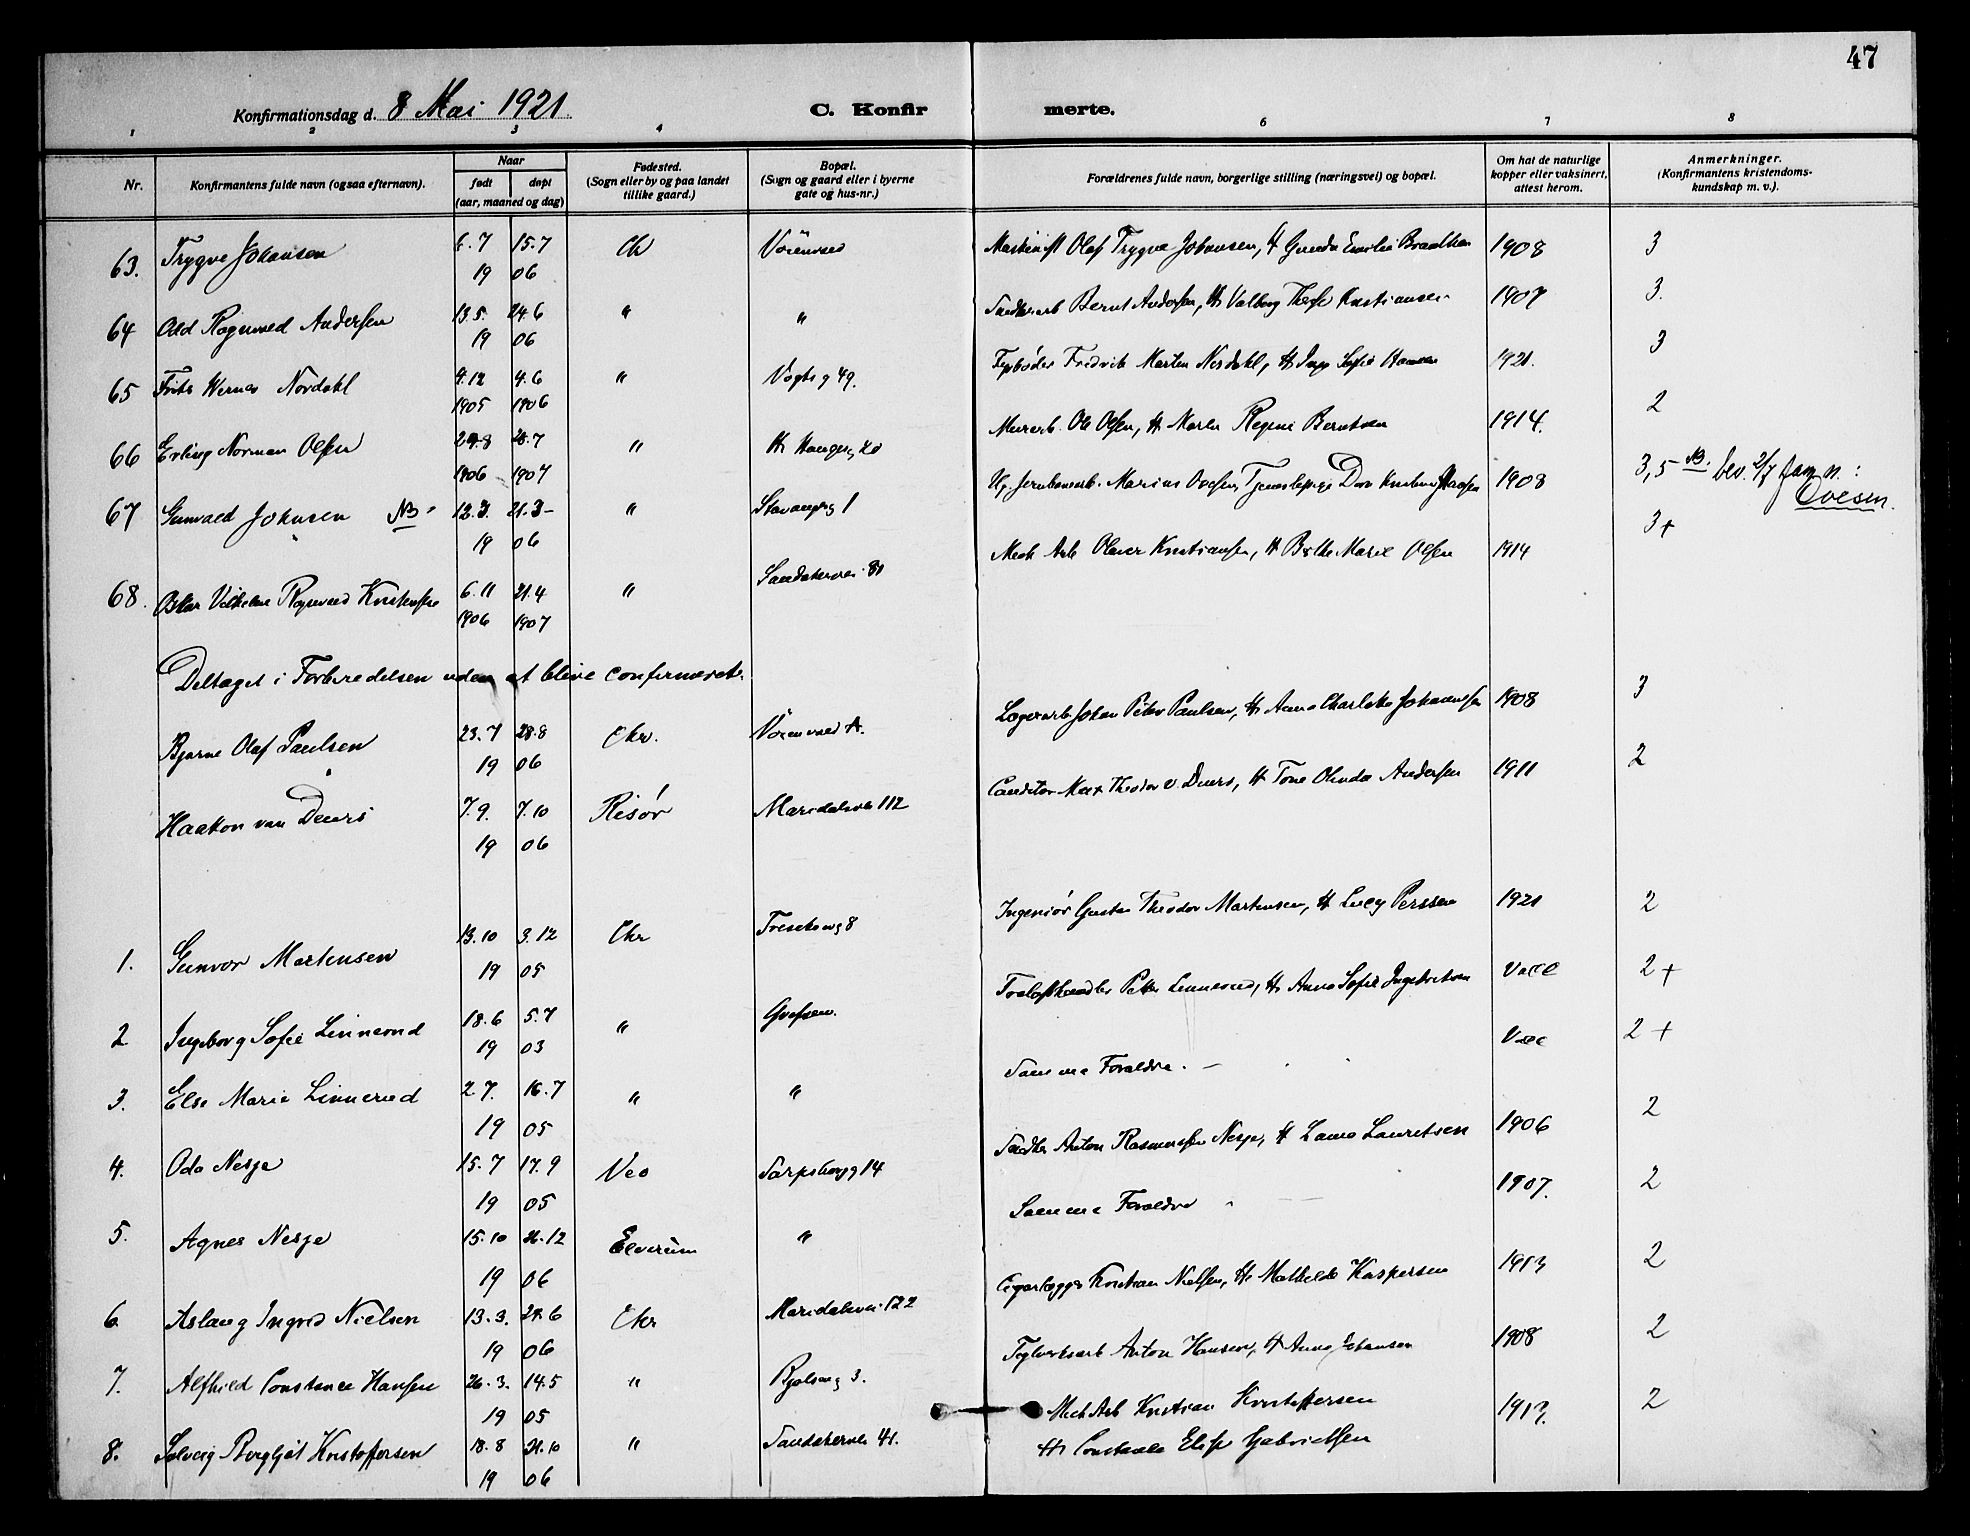 47
Konfirmationsdag d. 8 Mai 1921.
C. Konfir merte.
1 2 3 4 6 7 8
Nr.
Konfirmantens fulde navn (ogsaa efternavn).
Naar
født døpt
(aar, maaned og dag)
Fødested.
(Sogn eller by og paa landet
tillike gaard.)
Bopæl.
(Sogn og gaard eller i byerne
gate og hus-nr.)
Forældrenes fulde navn, borgerlige stilling (næringsvei) og bopæl.
Om hat de naturlige
kopper eller vaksinert,
attest herom.
Anmerkninger.
(Konfirmantens kristendoms-
kundskap m. v.).
63. Trygve Johansen 6.7 15.7 Olaf Trygve Johansen, H 1908 3
19 06
64 Odd Ragnvald Andersen 13.5. 24.6 " " Bernt Andersen, H Valborg Kristiansen 1907 3.
19 06
65 Nordahl 4.12 4.6 " Vogts g 49. Fredrik Morten Nordahl, H Inga Sofie Hansen 1921. 3
1905 1906
66 Erling Norman Olsen 29.8 28.7 " Murarb. Ole Olsen, H Regine Berntsen 1914. 2
1906 1907
67 Gunvald Johnsen NB 12.3. 21.3 " Stavangerg 1 Marius Ovesen, 1908 3,5 NB: bev. 2/7 fam. n.:
Ovesen.
19 06
68. Vilhelm Ragnvald Kristiansen 6.11 21.4 " Sandakervei 81 Mek Arb Kristiansen, H Marie Olsen 1914 3+
1906 1907
Deltaget i Forberedelsen uden at blive confirmeret.
Bjarne Olaf Paulsen 23.7 28.8 Chr. Lagerarb Johan Peter Paulsen, H Anna Charlotte Johannesen 1908 3
19 06
Haakon van Deurs 7.9 7.10 Risør Maridalsvei 112 Theodor v. Deurs, H Tone Andersen 1911 2
19 06
1. Gunvor Martensen 13.10 3.12 Chr 8 Ingeniør Theodor Martensen, H Lucy Perssen 1921 2
19 05
2 Ingeborg Sofie Linnerud 18.6 5.7 " Grefsen. Trælasthandler Linnerud, H Anna Sofie Ingebretsen Vacc 2+
19 03
3. Else Marie Linnerud 2.7. 16.7 " " Samme Forældre. Vacc 2+
19 05
4. Oda Nesje 15.7 17.9 Veo Sarpsborgg 14 Anton Rasmussen Nesje, H Laura Lauritsen 1906 2
19 05
5. Agnes Nesje 15.10 26.12 Elverum " Samme Forældre 1907. 2
19 06
6 Aslaug Ingrid Nielsen 13.3. 24.6 Chr Maridalsvei 122 Cigarlægger Kristian Nielsen, H Mathilde Kaspersen 1913 2
19 06
7. Alfhild Constance Hansen 26.3. 14.5 " Bjølseng 3. Teglverksarb Anton Hansen, H Anna Johansen 1908 2
19 05
8. Solveig Bergljot Kristoffersen 18.8 21.10 " Sandakervei 41. Mek Arb Kristian Kristoffersen 1913. 2
H Constance Elise Gabrielsen
19 06